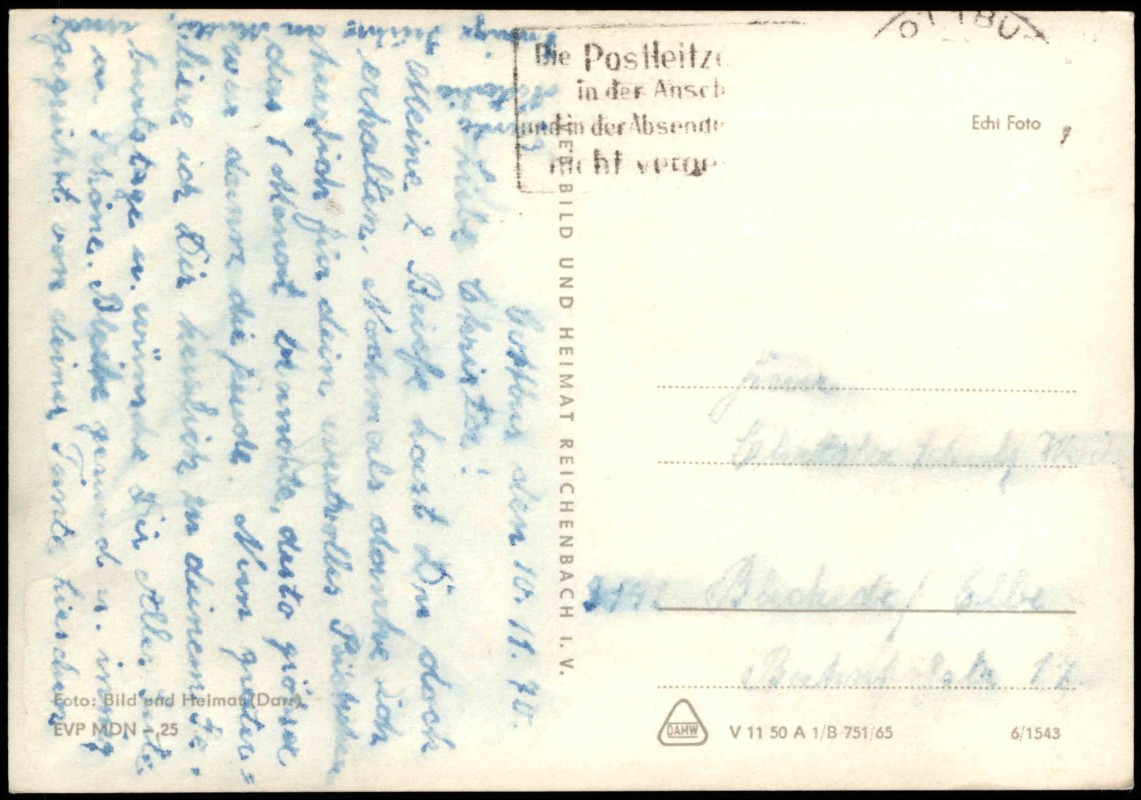 Cottbus den 10. 11. 70.
Liebe Christa!
Meine 2 Briefe hast Du doch
erhalten. Nochmals danke ich
herzlich für dein wertvolles Päckchen
dies 1 Monat brauchte, desto grösser
war dann die Freude. Nun gratu-
liere ich Dir herzlich zu deinem Ge-
burtstage u. wünsche Dir Alles Gute.
Schöne. Bleibe gesund u. innig
gegrüsst von deiner Tante Lieschen
Die Postleitz
in der Ansch
und in der Absende
nicht verge
OTTBU
Echt Foto
VERLAG BILD UND HEIMAT REICHENBACH I. V.
Frau
Schulz
Bleckede / Elbe
Foto: Bild und Heimat (Darr)
EVP MDN -,25
DAMW
V 11 50 A 1/B 751/65
6/1543